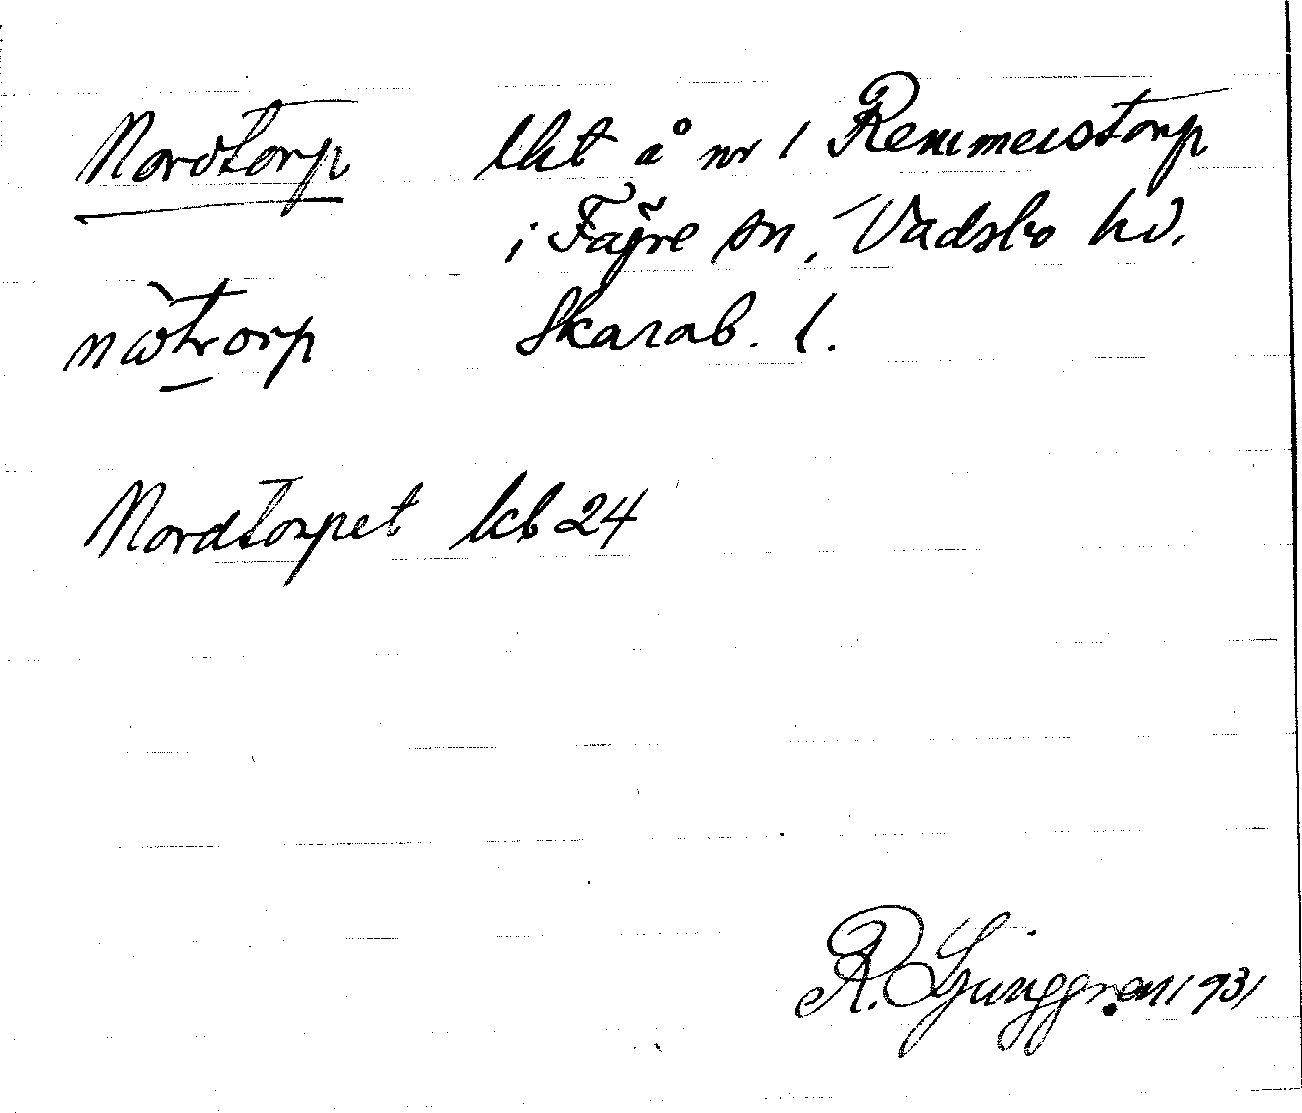 Nordtorp lht å nr 1 Remmerstorp
i Fägre sn, Vadsbo hd.
Skarab. l.
Nordtorpet kb 24
R. Ljunggren 1931